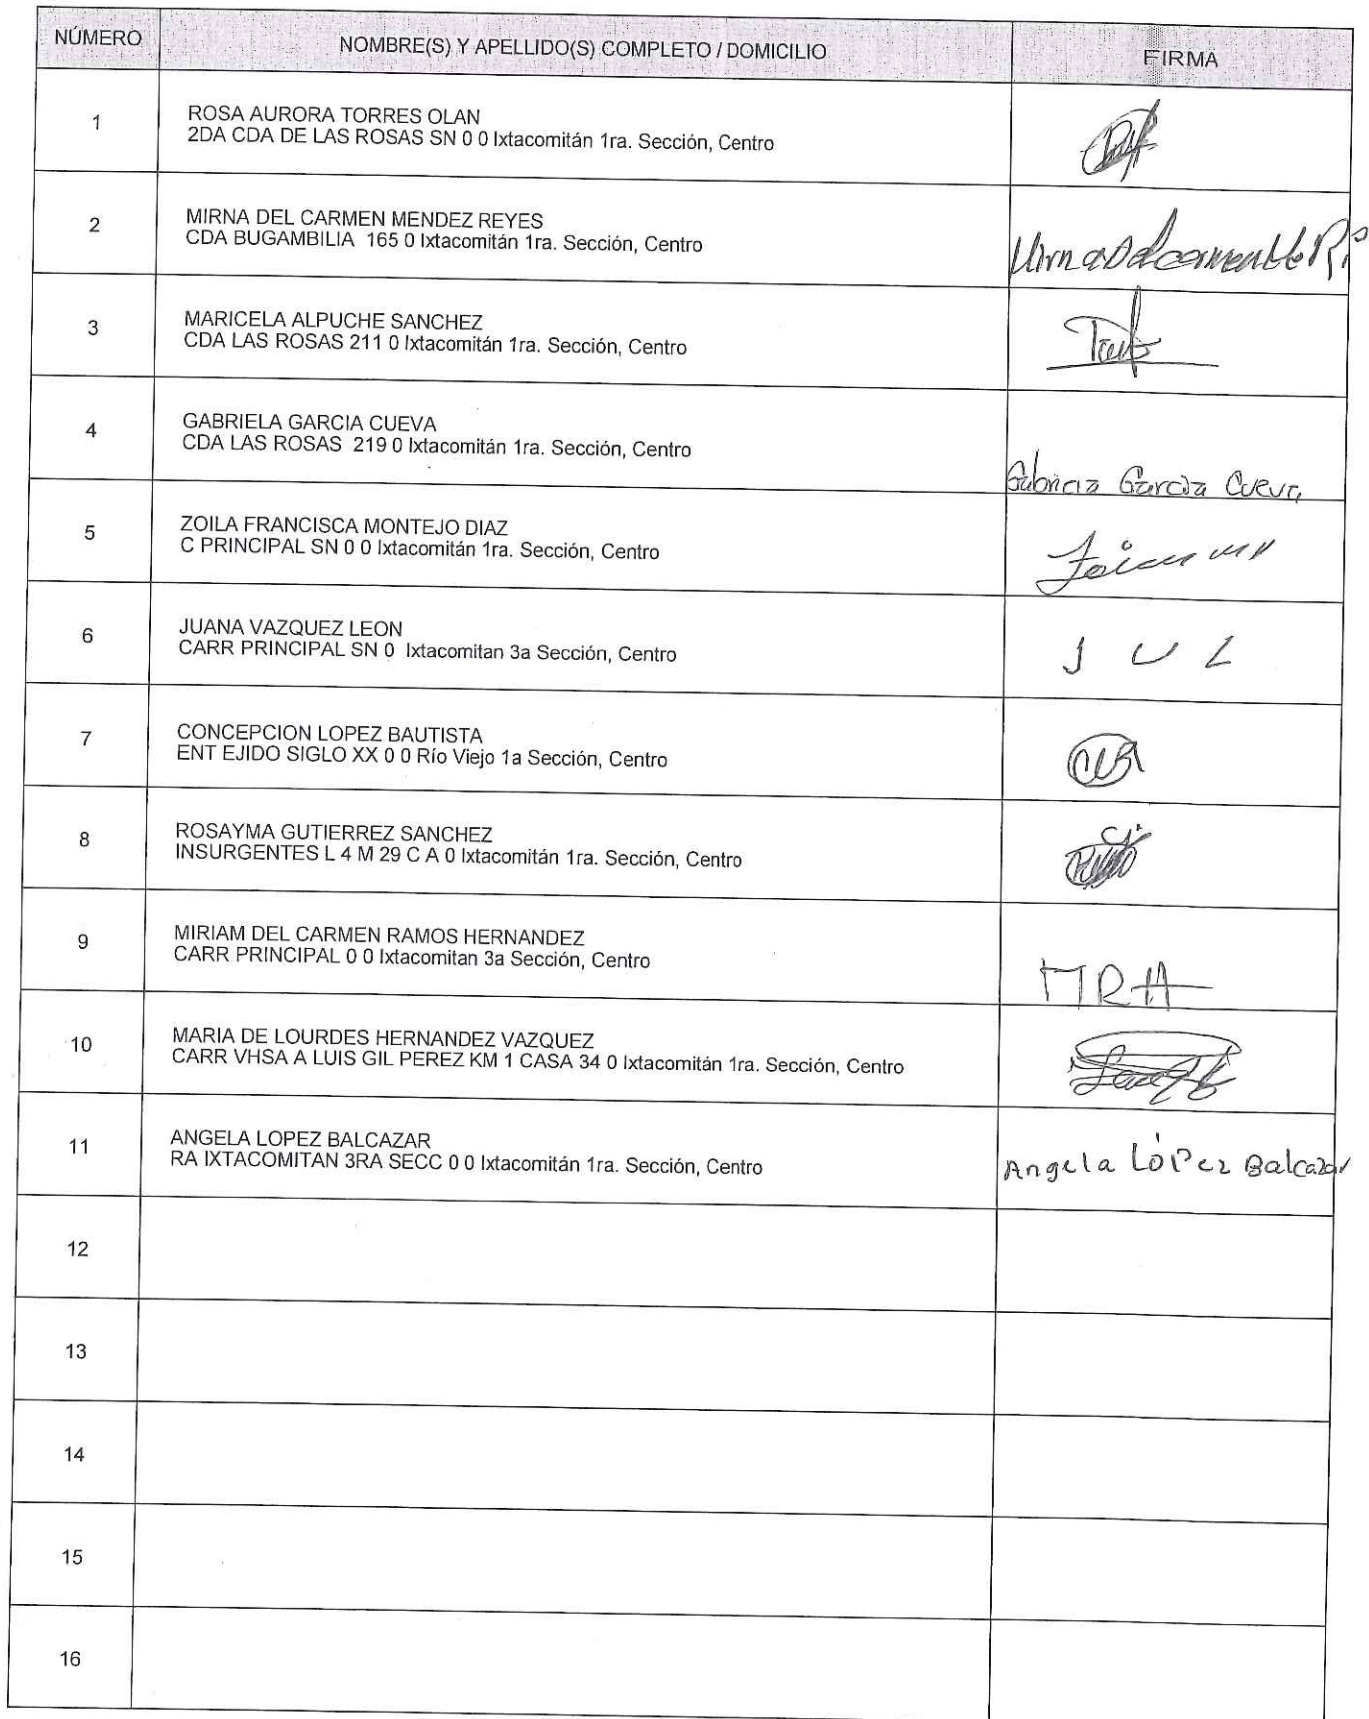 NÚMERO NOMBRE(S) Y APELLIDO(S) COMPLETO / DOMICILIO FIRMA
1 ROSA AURORA TORRES OLAN
2DA CDA DE LAS ROSAS SN 0 0 Ixtacomitán 1ra. Sección, Centro
2 MIRNA DEL CARMEN MENDEZ REYES
CDA BUGAMBILIA 165 0 Ixtacomitán 1ra. Sección, Centro
3 MARICELA ALPUCHE SANCHEZ
CDA LAS ROSAS 211 0 Ixtacomitán 1ra. Sección, Centro
4 GABRIELA GARCIA CUEVA
CDA LAS ROSAS 219 0 Ixtacomitán 1ra. Sección, Centro
Garcia Cueva
5 ZOILA FRANCISCA MONTEJO DIAZ
C PRINCIPAL SN 0 0 Ixtacomitán 1ra. Sección, Centro
6 JUANA VAZQUEZ LEON
CARR PRINCIPAL SN 0 Ixtacomitan 3a Sección, Centro
J V L
7 CONCEPCION LOPEZ BAUTISTA
ENT EJIDO SIGLO XX 0 0 Río Viejo 1a Sección, Centro
CLB
8 ROSAYMA GUTIERREZ SANCHEZ
INSURGENTES L 4 M 29 C A 0 Ixtacomitán 1ra. Sección, Centro
9 MIRIAM DEL CARMEN RAMOS HERNANDEZ
CARR PRINCIPAL 0 0 Ixtacomitan 3a Sección, Centro
MRH
10 MARIA DE LOURDES HERNANDEZ VAZQUEZ
CARR VHSA A LUIS GIL PEREZ KM 1 CASA 34 0 Ixtacomitán 1ra. Sección, Centro
11 ANGELA LOPEZ BALCAZAR
RA IXTACOMITAN 3RA SECC 0 0 Ixtacomitán 1ra. Sección, Centro
Angela López Balcazar
12
13
14
15
16